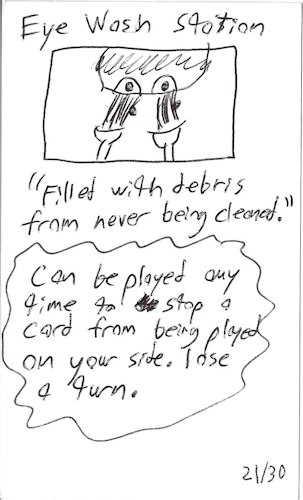 Eye Wash Station
"Filled with debris
from never being cleaned."
Can be played any
time to stop a
card from being played
on your side. Lose
a turn.
21/30